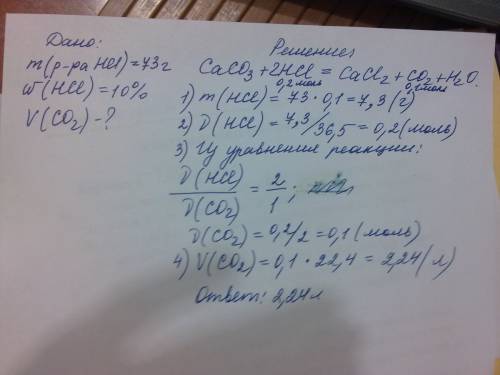 Дано:
m(р-ра HCl)=73г
ω(HCl)=10%
V(CO₂)-?
Решение:
CaCO₃+2HCl = CaCl₂+CO₂+H₂O.
0,2моль 0,1моль
1) m(HCl)=73·0,1=7,3(г)
2) ν(HCl)=7,3/36,5=0,2(моль)
3) Из уравнения реакции:
ν(HCl)/ν(CO₂) = 2/1;
ν(CO₂)=0,2/2=0,1(моль)
4) V(CO₂)=0,1·22,4=2,24(л)
Ответ: 2,24л